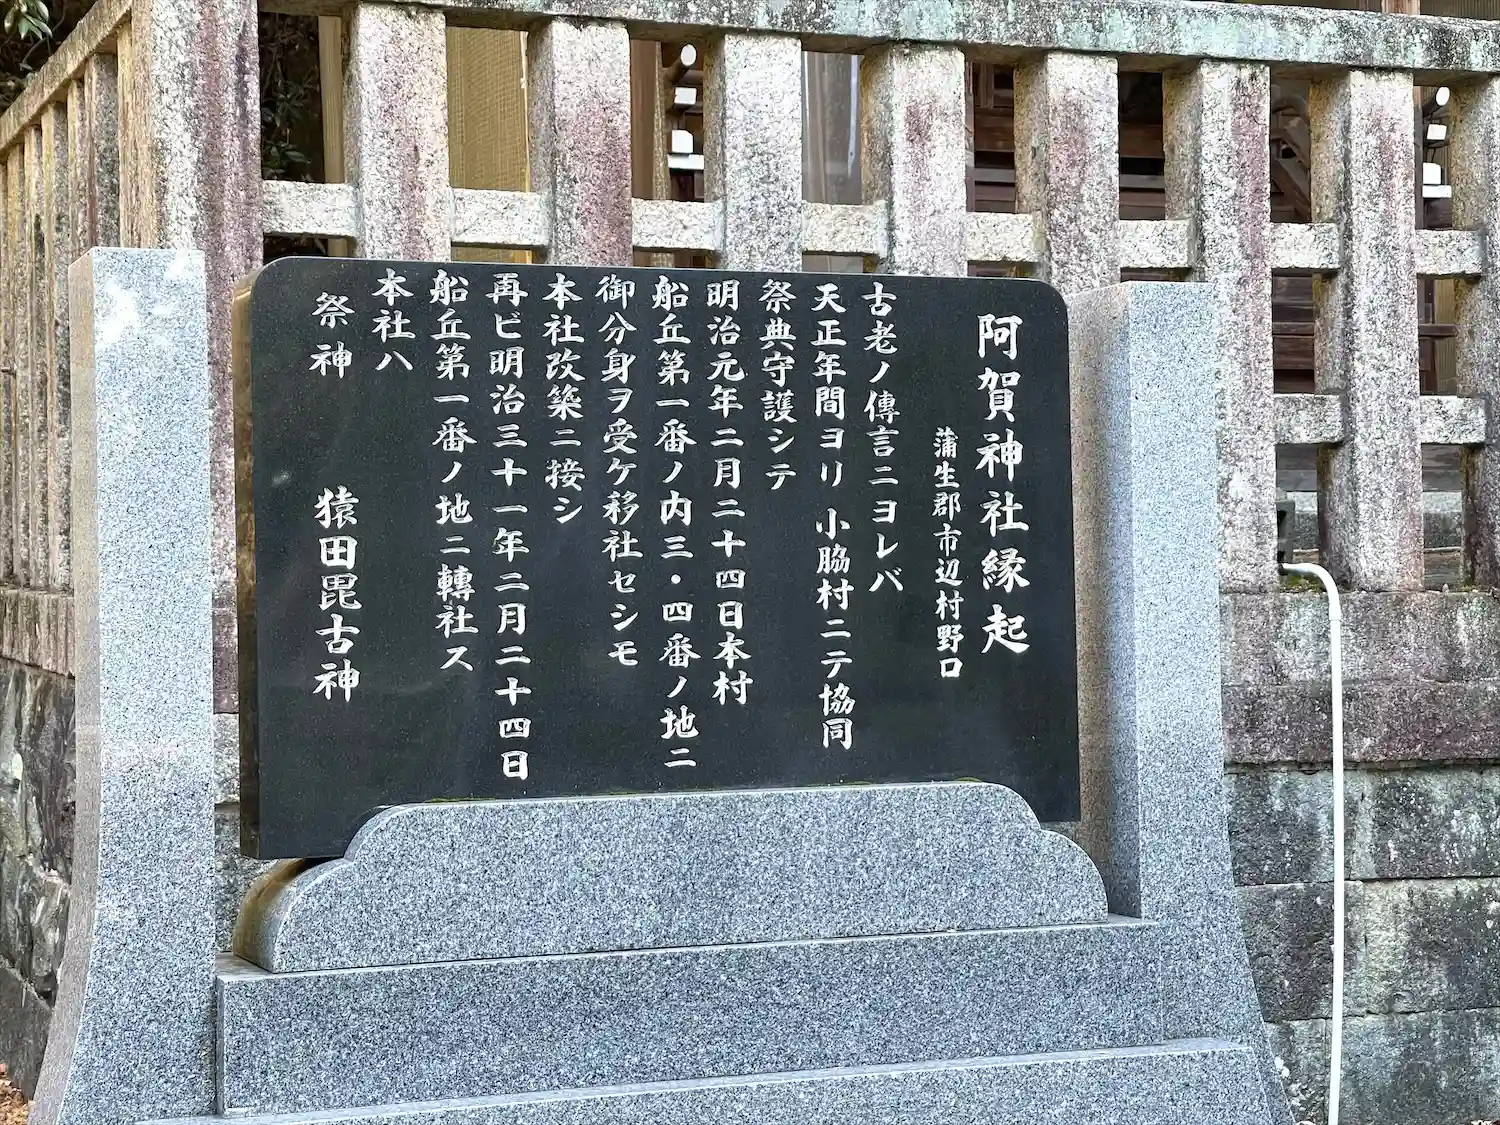 阿賀神社縁起
蒲生郡市辺村野口
古老ノ傳言ニヨレバ
天正年間ヨリ 小脇村ニテ協同
祭典守護シテ
明治元年二月二十四日本村
船丘第一番ノ内三・四番ノ地ニ
御分身ヲ受ケ移社セシモ
本社改築ニ接シ
再ビ明治三十一年二月二十四日
船丘第一番ノ地ニ轉社ス
本社ハ
祭神 猿田毘古神